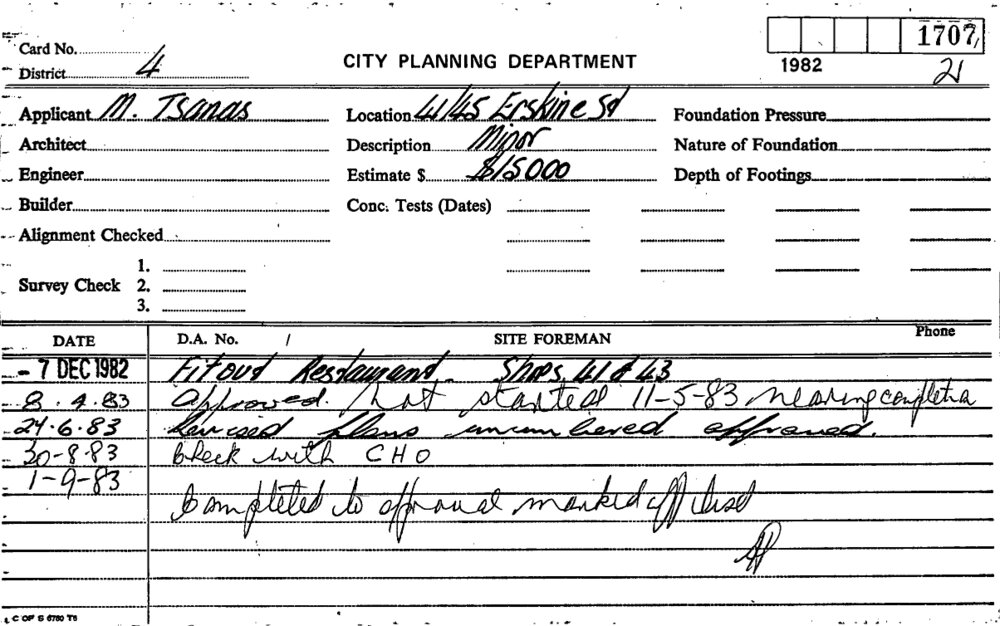 Card No.
1707
District 4
CITY PLANNING DEPARTMENT
1982
21
Applicant M. Tsanas
Location 41/45 Erskine St
Foundation Pressure
Architect
Description Minor
Nature of Foundation
Engineer
Estimate $ $15000
Depth of Footings
Builder
Conc. Tests (Dates)
Alignment Checked
Survey Check
1.
2.
3.
DATE
D.A. No. /
SITE FOREMAN
Phone
- 7 DEC 1982 Fitout Restaurant Shops 41 & 43
8.4.83 Approved. Not started 11-5-83 nearing
24.6.83 Revised plans unnumbered approved.
30-8-83 Check with CHO
1-9-83
Completed to approval marked off
C OF S 6780 TS